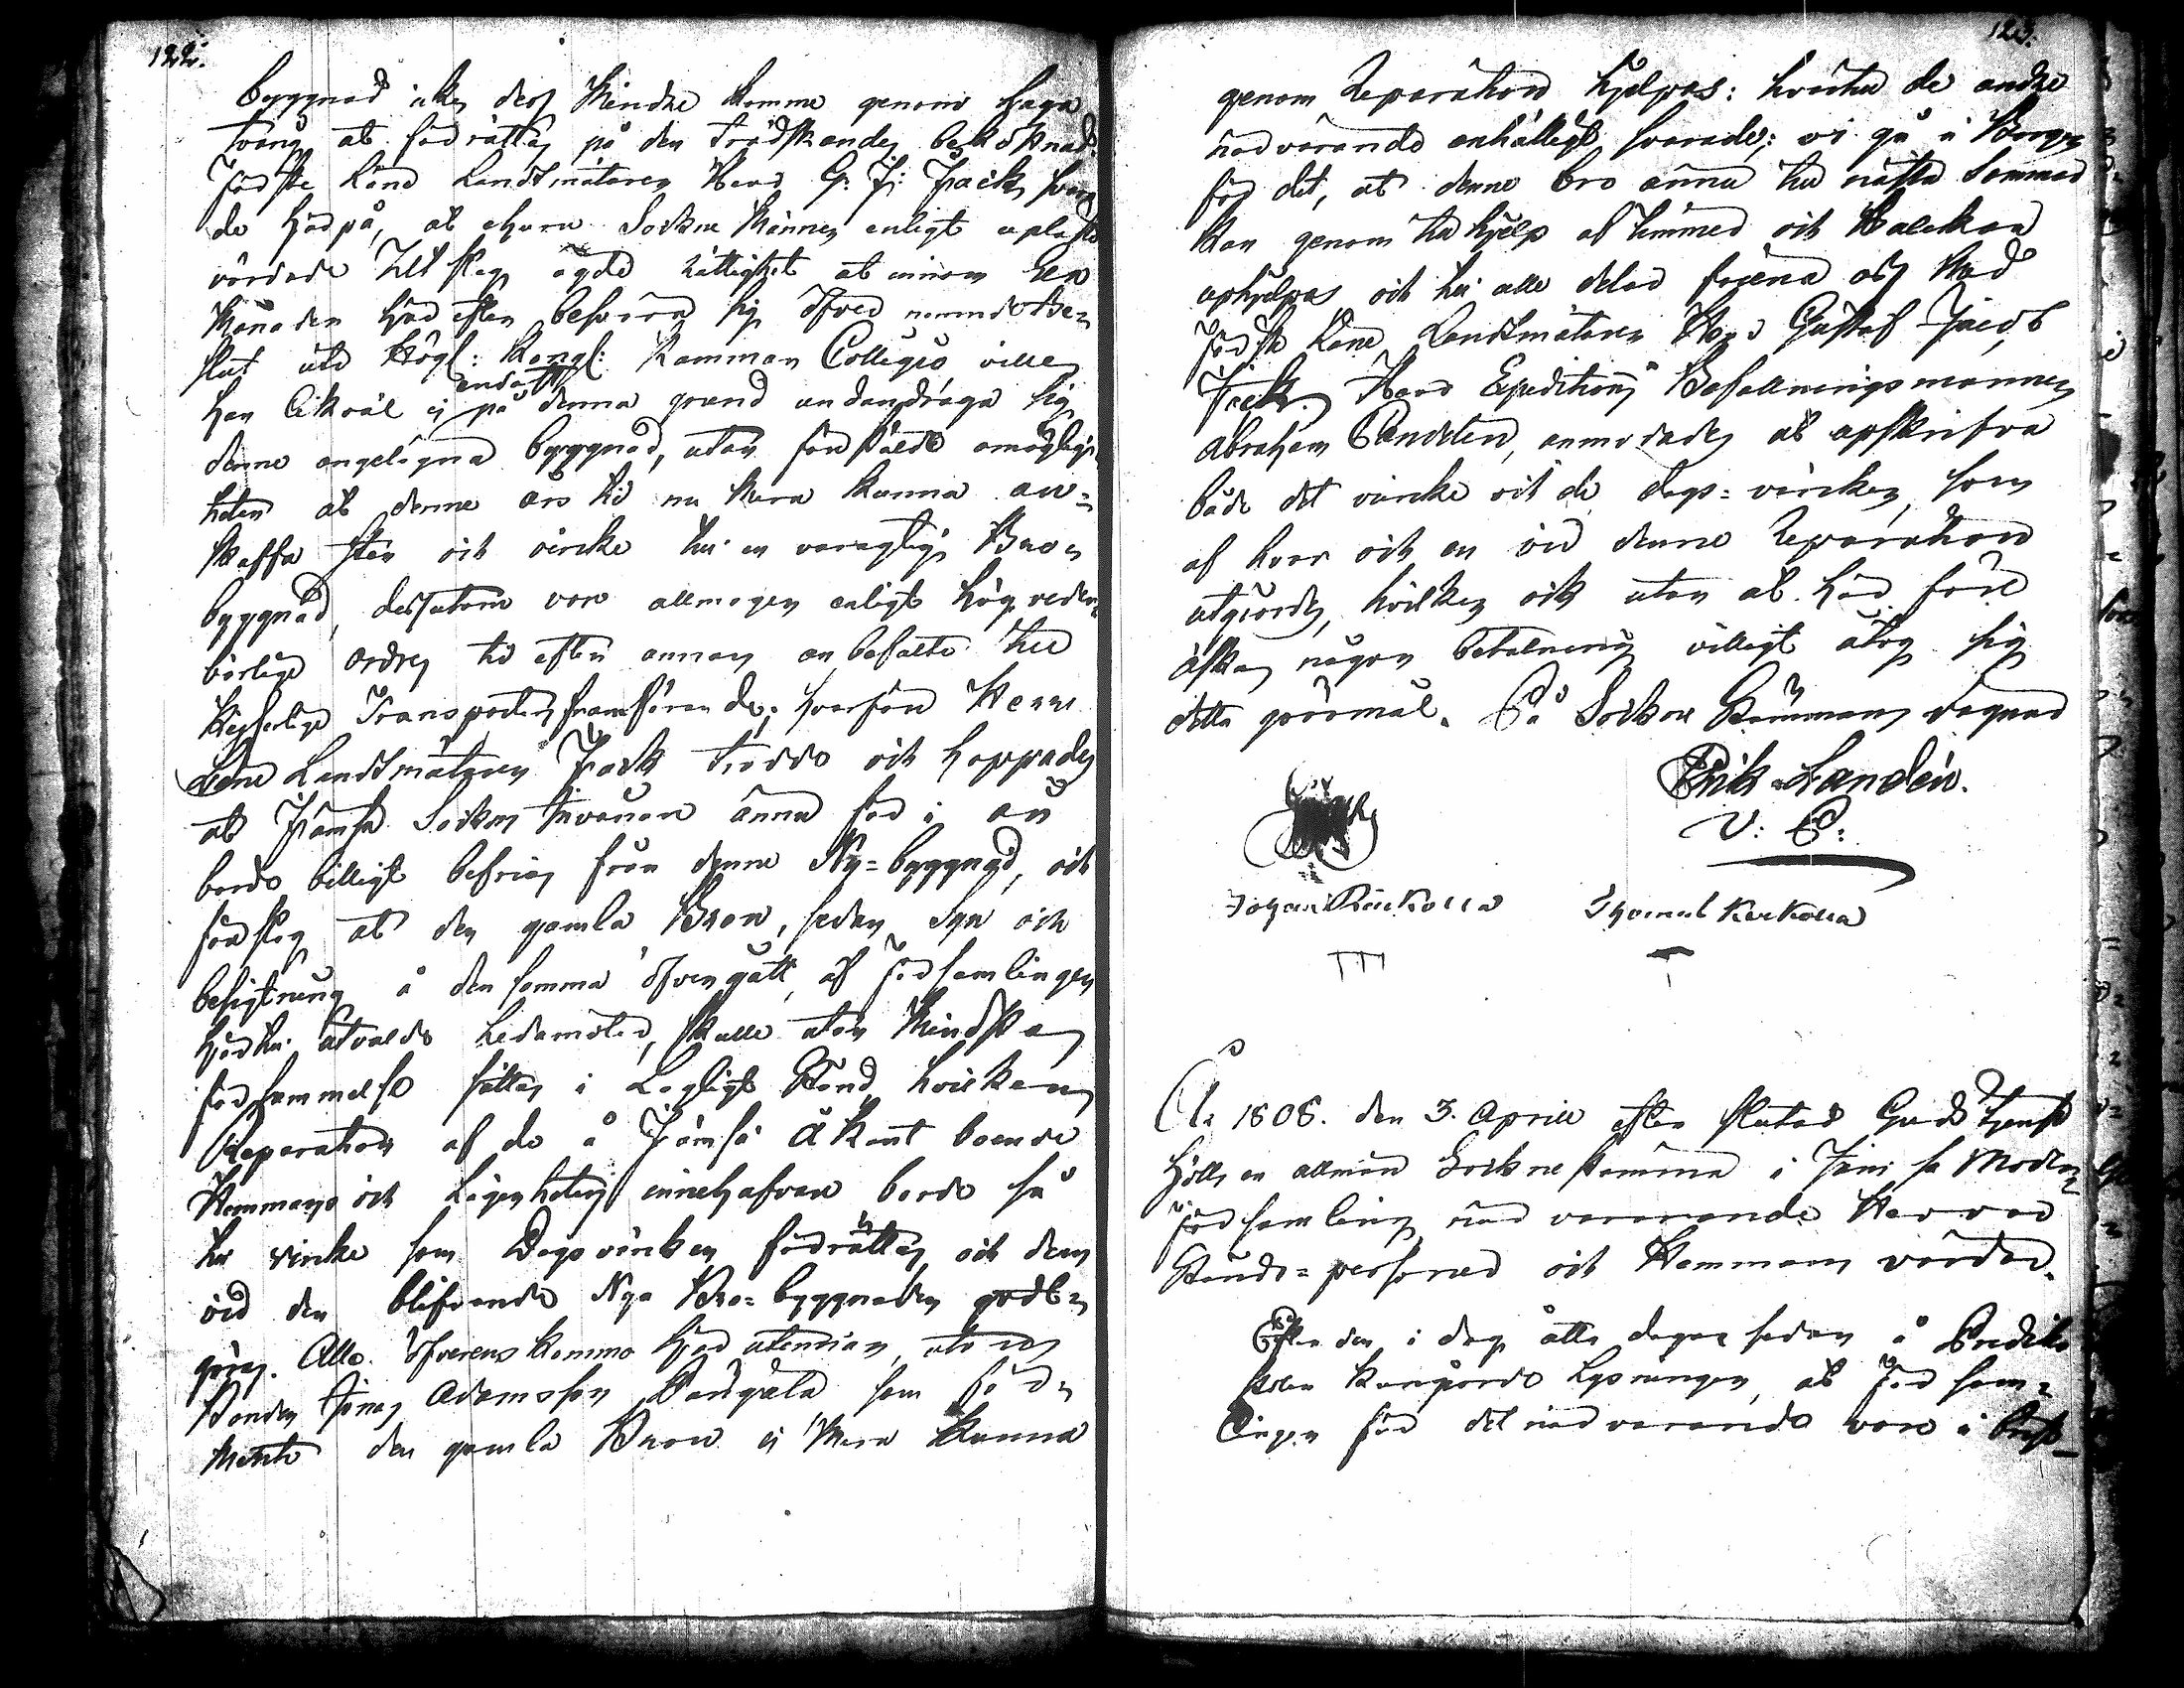 122.
byggnad icke dess mindre komme genom laga
tvång at förrättas på den tredskandes bekostnad.
Förste Lands Landtmätaren Herr G: J: Jack svara
de härpå, at ehuru Sockne Männen enligt uplaste
vördade Utslag ägde rättighet at innom Sex
Månader här efter besvära sig öfver nemnde Be=
slut uti Högl: Kongl: Kammar Collegio ville
han likväl ej på endast denna grund undandraga sig
denne angelägna byggnad, utan förestälde omöjlig=
heten at denne års tid nu mera kunna an=
skaffa sten och virke til en varagtig Bro=
byggnad, dessutom vore allmogen enligt högveder=
börlige ordres tid efter annan anbefalte til
Kejserlige Transporters framförande; hvarföre Herr
Lands Landtmätaren Jack trodde och hoppades
at Jämsä Sockens Invånare ännu för i år
borde billigt befrias från denne Ny=byggnad, och
föreslog at den gamla Bron, sedan Syn och
besigtning å den samma öfvergått af Församlingen
härtil utvalde Ledamöter, skulle utan minsta
försummelse sättas i Lagligt Stånd hvilken
Reparation af de å Jämsä Å kant boende
Hemmans och Lägenheters innehafvare borde så
til virke som Dagsvärken förrättas och dem
vid den blifvande Nya Bro=byggnaden godt=
göras. Alla öfverenskommo här utinnan, utom
Bonden Jonas Adamsson som för=
mente den gamla Bron ej mera kunna
123.
genom Reparation hjelpas: hvartil de andre
närvarande enhälligt svarade: vi gå i Borgen
för det, at denne bro ännu til nästa Sommar
kan genom tilhjelp af timmer och
uphjelpas och til alla delar tjena oss Med
Förste Lands Landtmätaren Herr Gustaf Jacob
Jack. Herr Expeditions Befallningsmannen
Abraham anmodades at upskrifva
både det virke och de dags=värken, som
af hvar och en vid denne Reparation
utgiordes, hvilken ock utan at här före
äska någon betalning villigt åtog sig
detta giöromål. På Sockne Stämmans vägnar
Erik Landén.
V: P:
Johan Thomas
År 1808. den 3. April efter slutad Gudstjenst
hölls en allmän Sockne stämma i Jämsä Moder=
Församling närvarande Herrar
Stånds=personer och Hemmans värdar.
Efter den i dag åtta dagar sedan å Predik
stolen kungiorde Lysningen, at Försam=
lingen för det närvarande vore i brist